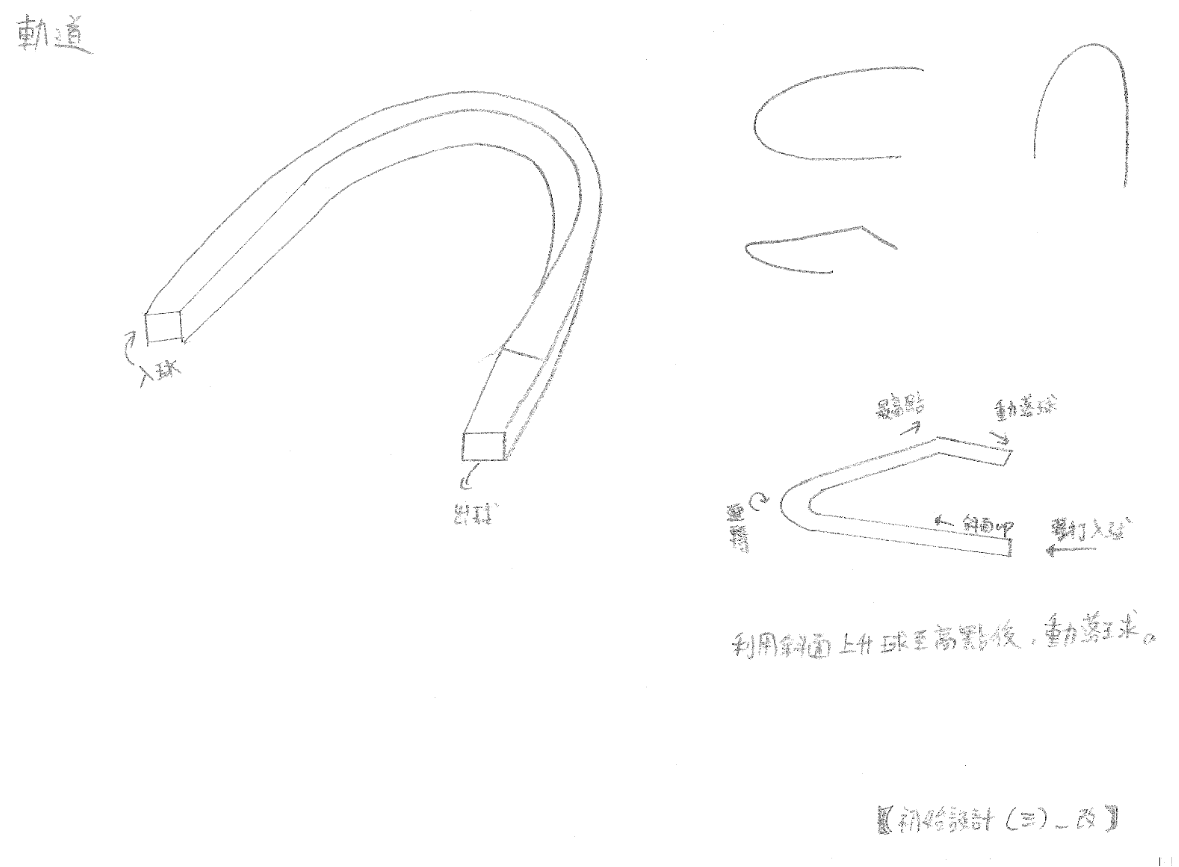 軌道
入球
出球
最高點
動落球
斜面up
擊打入球
利用斜面上升球至高點後，動落球。
【初始設計(三)_改】